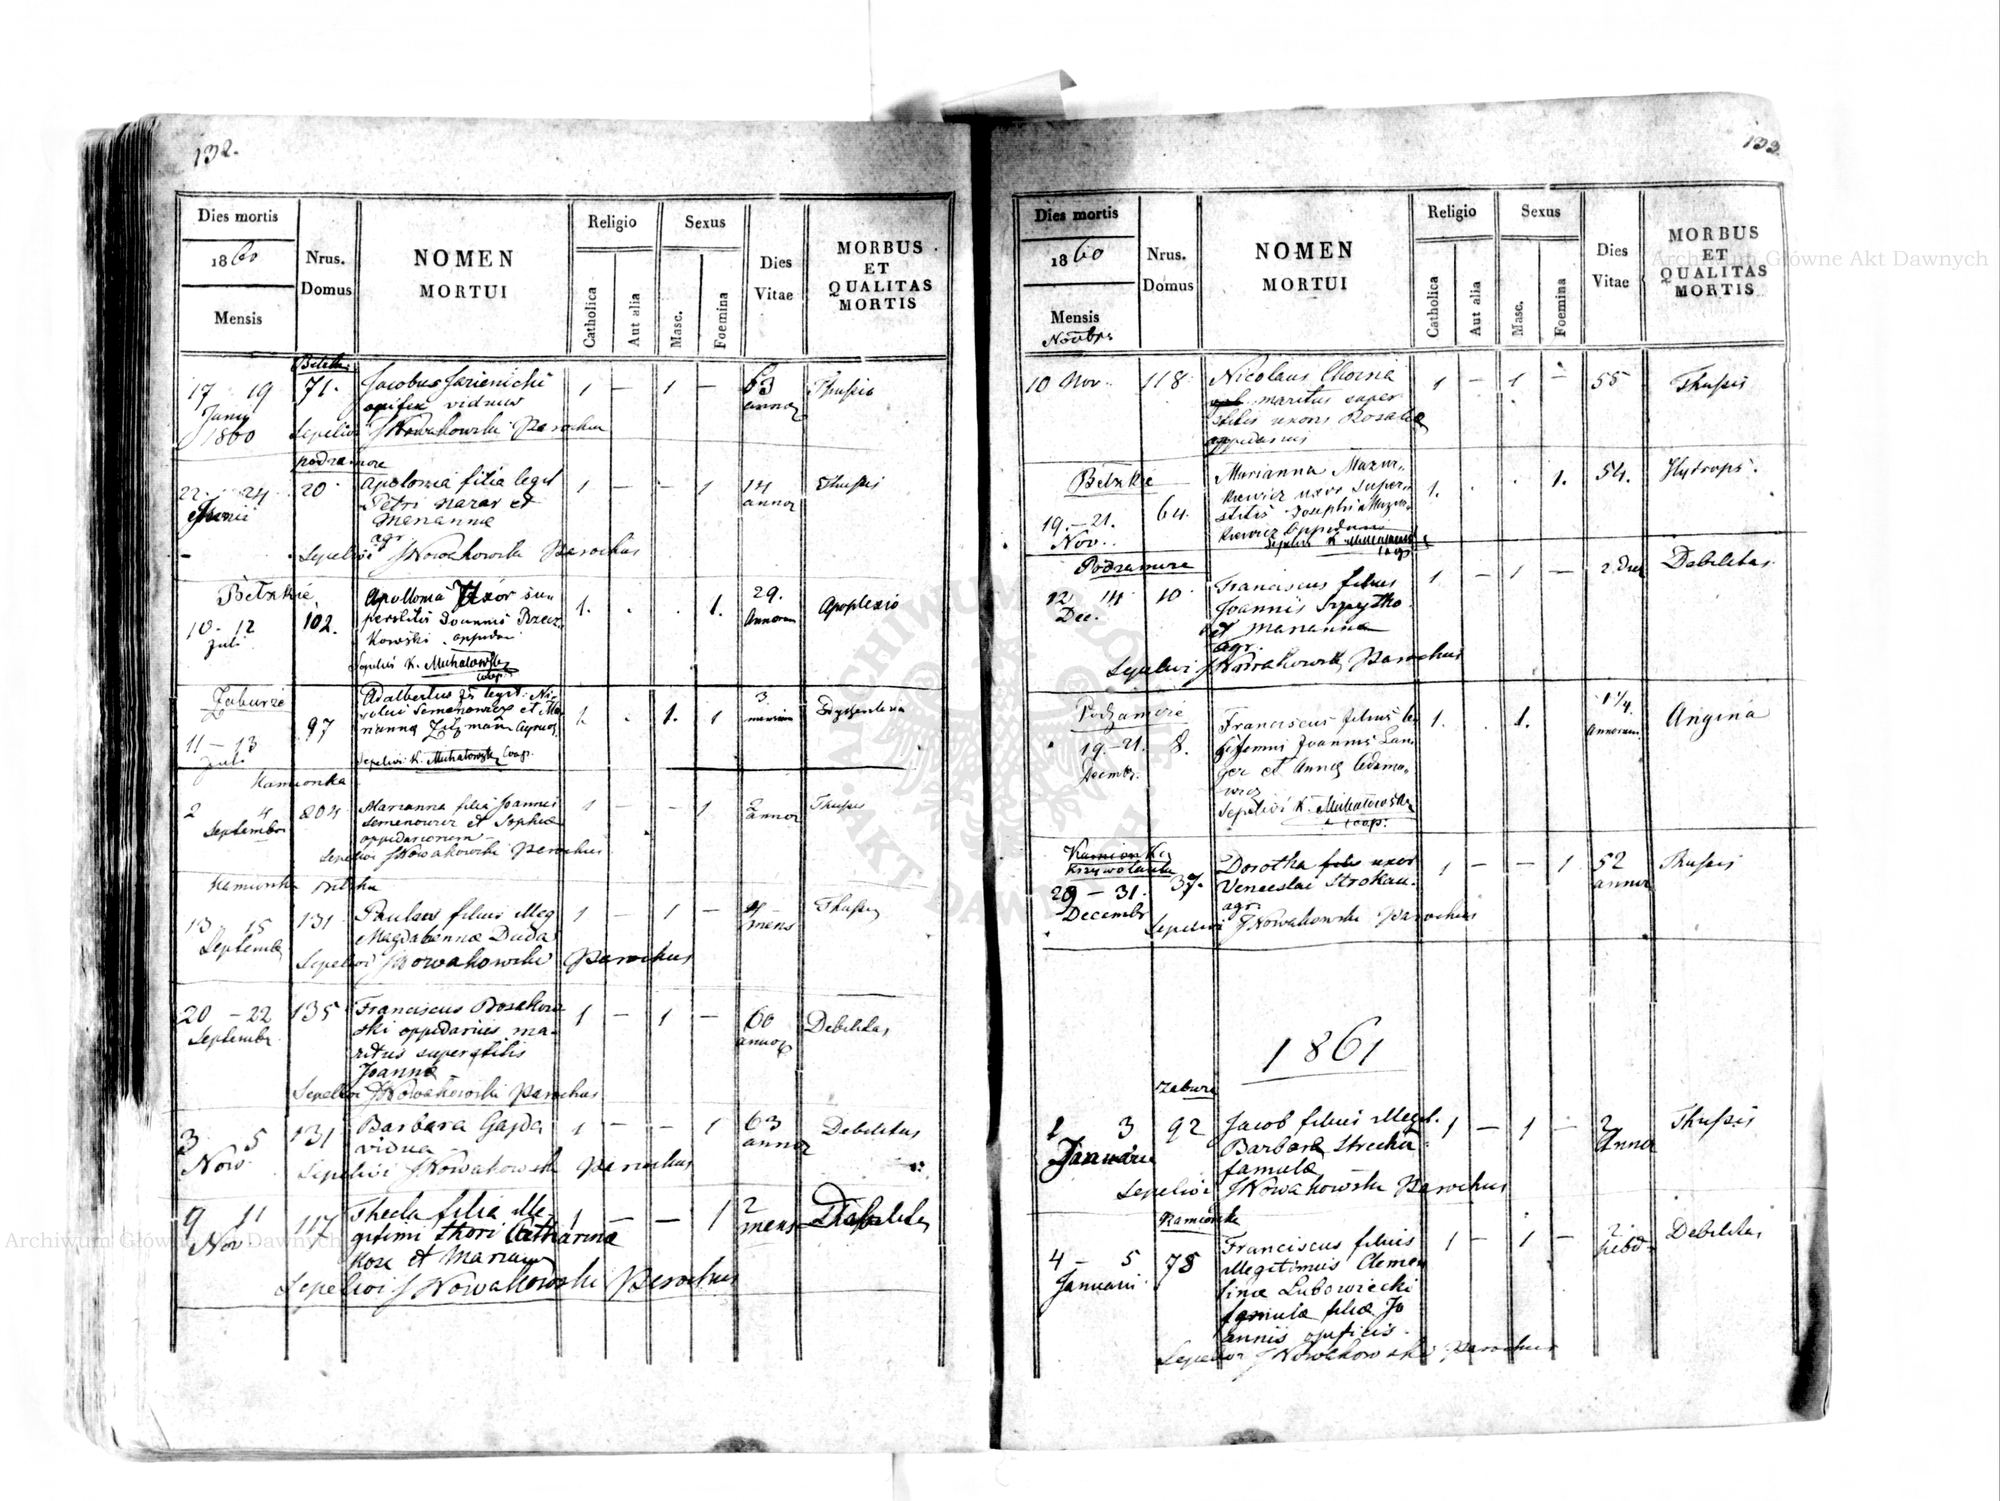 132.
Dies mortis
1860
Mensis
Nrus.
Domus
NOMEN
MORTUI
Religio
Catholica
Aut alia
Sexus
Masc.
Foemina
Dies
Vitae
MORBUS
ET
QUALITAS
MORTIS
17 19
1860
71.
Jacobus
opifex viduus
1 — 1 —
63
annor
Thussis
Sepelivi J Nowakowski Parochus
22 24
Junii
20
Apolonia filia legit
Petri Nazar et
Mariannae
agr
1 — — 1
14
annor
Thussis
Sepelivi J Nowakowski Parochus
Bełzkie
10 - 12
Juli
102.
Apollonia Uxor su-
perstitis Joannis Rzecz-
kowski oppidani
Sepelivi K. Michałowski
coop.
1. . . 1.
29.
Annorum
Apoplexio
Zaburze
11 – 13
Juli
97
Adalbertus fs legit: Ni-
colai Semenowicz et Ma-
rianna
Sepelivi K. Michałowski Coop.
1. . 1. 1
3
mensium
Kamionka
2 4
Septembr
204
Marianna filia Joannis
Semenowicz et Sophiae
oppidanorum
1 — — 1
2
annor
Thussis
Sepelivi J Nowakowski Parochus
Kamionka
13 15
Septembr
131
Paulus filius illeg
Magdalennae Duda
1 — 1 —
mens
Thussis
Sepelivi J Nowakowski Parochus
20 – 22
Septembr
135
Franciscus
ski oppidanus ma-
ritus superstitis
Joanna
1 — 1 —
60
annor
Debilitas
Sepelivi J Nowakowski Parochus
3 5
Nov
131
Barbara Gajda
vidua
1 — — 1
63
annor
Debilitas
Sepelivi J Nowakowski Parochus
9 11
Nov
117
Thecla filia ille-
gitimi thori Catharinae
1 — — 1
2
mens
Sepelivi J Nowakowski Parochus
133
Dies mortis
1860
Mensis
Novbr.
Nrus.
Domus
NOMEN
MORTUI
Religio
Catholica
Aut alia
Sexus
Masc.
Foemina
Dies
Vitae
MORBUS
ET
QUALITAS
MORTIS
10 Nov.
118
Nicolaus
maritus super
stitis uxoris Rosaliae
oppidanus
1 — 1 —
55
Thussis
Bełzkie
19.–21.
Nov.
64.
Marianna Mazur-
kiewicz uxor super-
stitis Josephi Mazur-
kiewicz Oppidani
1. . . 1.
54.
Hydrops.
Podzamcze
12 14
Dec.
10
Franciscus filius
Joannis
et Marianna
agr.
1 — 1 —
Debilitas.
Sepelivi J Nowakowski Parochus
Podzamcze
19.–21.
Decembr.
8.
Franciscus filius le-
gitimus Joannis Lan-
ger et Anna Adamo-
wicz
Sepelivi K. Michałowski
coop.
1. . 1.
1 1/4.
Annorum
Angina
Kamionka
29 – 31.
Decembr
37.
Dorothea uxor
Venceslai
agr.
1 — — 1
52
annor
Thussis
Sepelivi J Nowakowski Parochus
1861
Zaburze
1 3
Januarii
92
Jacob filius illegit.
Barbara
famula
1 — 1 —
2
Annor
Thussis
Sepelivi J Nowakowski Parochus
Kamionka
4 – 5
Januarii
78
Franciscus filius
illegitimus Clemen
tinae Lubowiecki
famula filiae Jo
annis opificis.
1 — 1 —
2
hebd
Debilitas
Sepelivi J Nowakowski Parochus
Archiwum Główne Akt Dawnych
Archiwum Główne Akt Dawnych